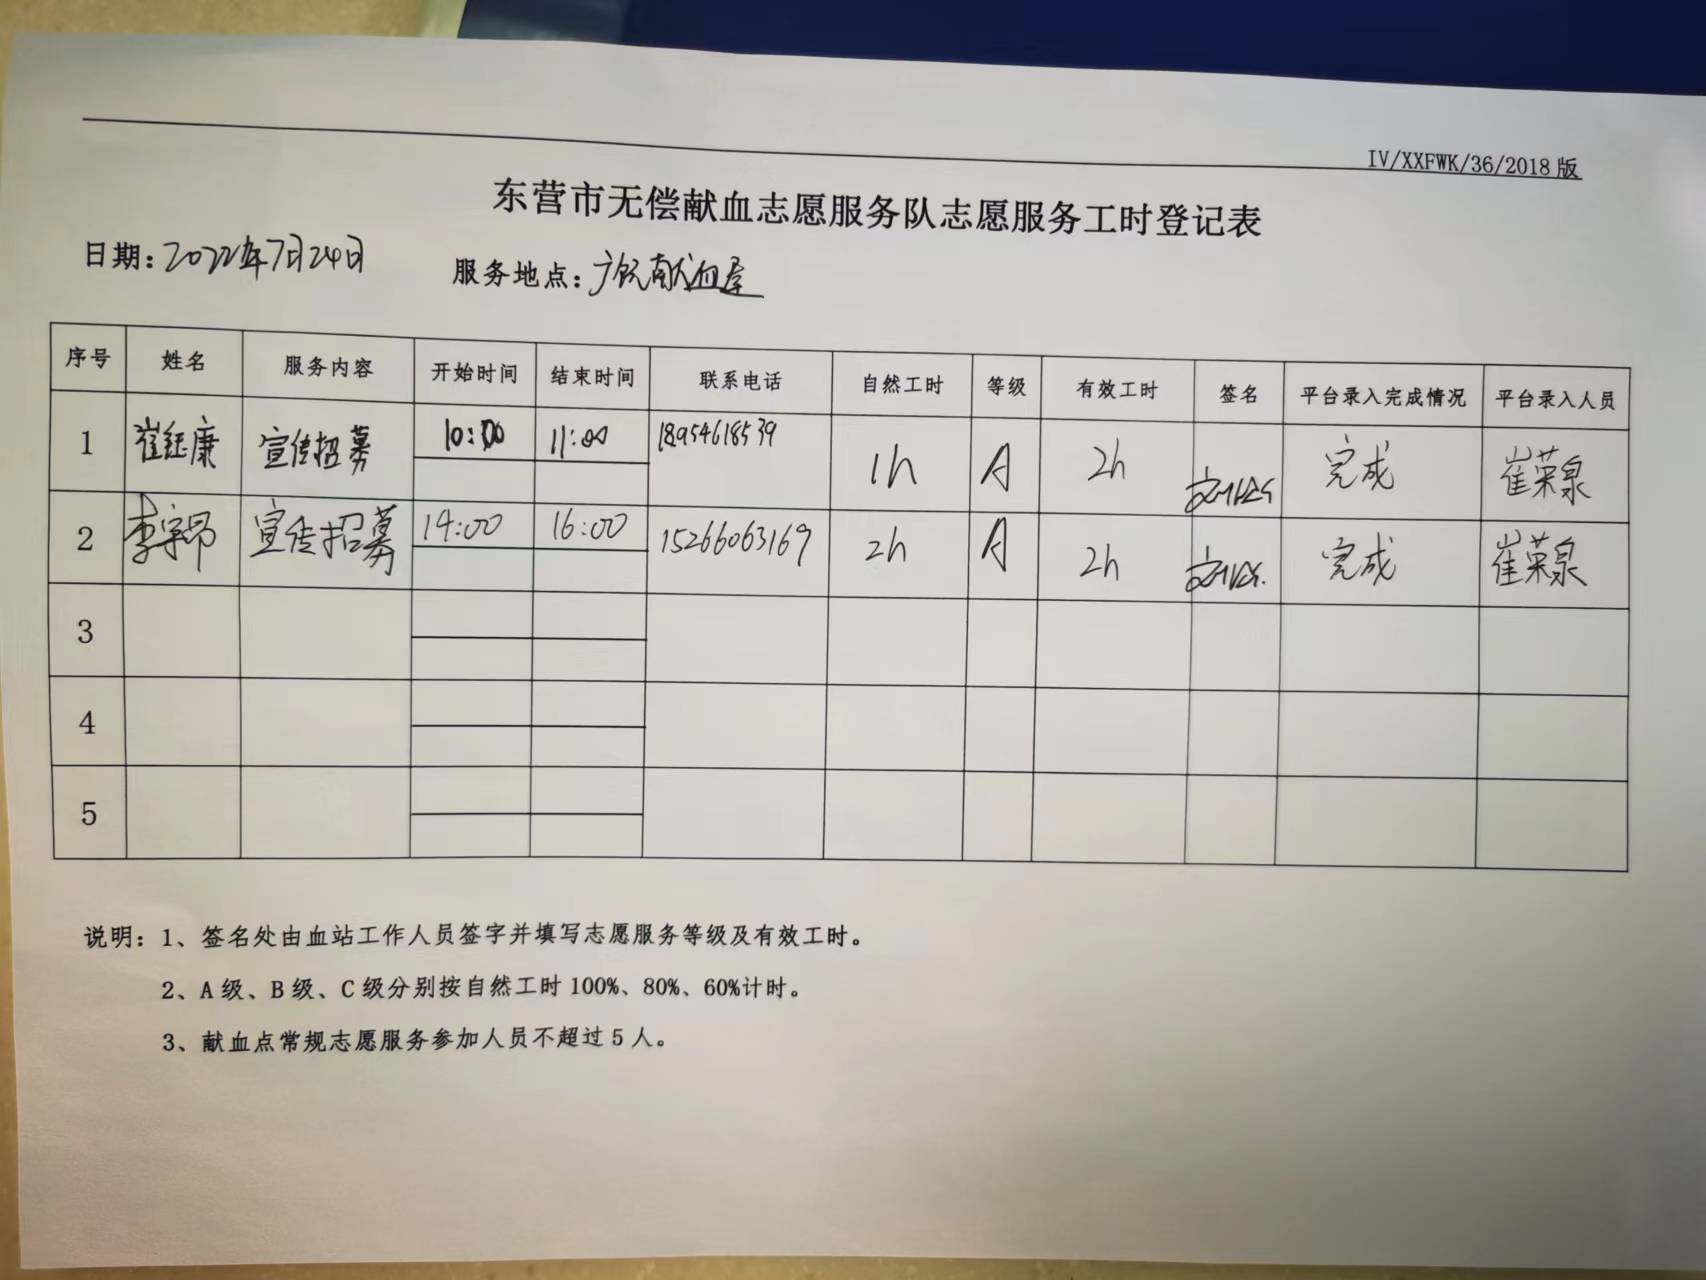 IV/XXFWK/36/2018版
东营市无偿献血志愿服务队志愿服务工时登记表
日期:2022年7月24日 服务地点:广饶献血屋
序号 姓名 服务内容 开始时间 结束时间 联系电话 自然工时 等级 有效工时 签名 平台录入完成情况 平台录入人员
1 崔钰康 宣传招募 10:00 11:00 18954618539 1h A 2h 完成 崔荣泉
2 李宇昂 宣传招募 14:00 16:00 15266063169 2h A 2h 完成 崔荣泉
3
4
5
说明:1、签名处由血站工作人员签字并填写志愿服务等级及有效工时。
2、A级、B级、C级分别按自然工时100%、80%、60%计时。
3、献血点常规志愿服务参加人员不超过5人。